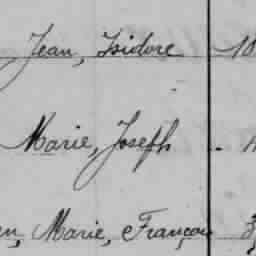 Jean, Isidore 10
Marie, Joseph
Marie, François